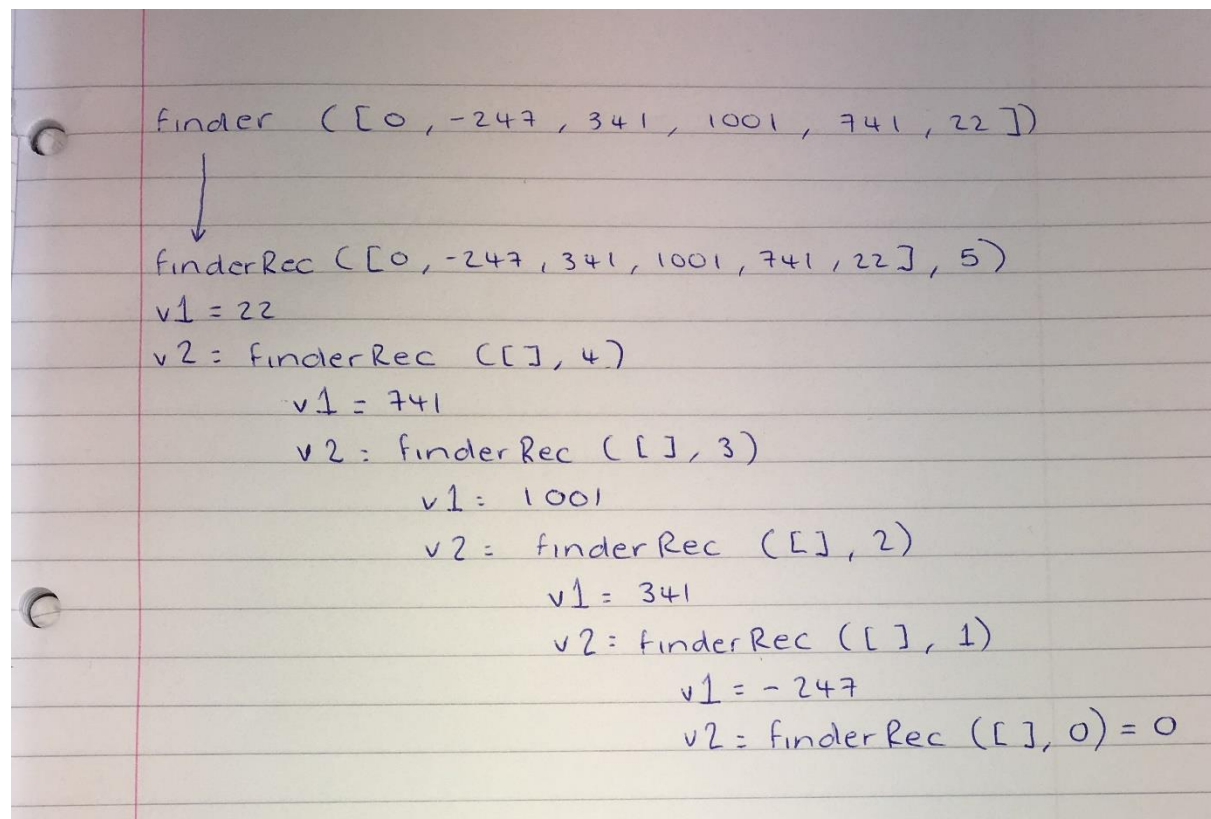 finder ([0, -247, 341, 1001, 741, 22])
finderRec ([0, -247, 341, 1001, 741, 22], 5)
v1 = 22
v2 = finderRec ([], 4)
v1 = 741
v2 = finderRec ([], 3)
v1 = 1001
v2 = finderRec ([], 2)
v1 = 341
v2 = finderRec ([], 1)
v1 = -247
v2 = finderRec ([], 0) = 0